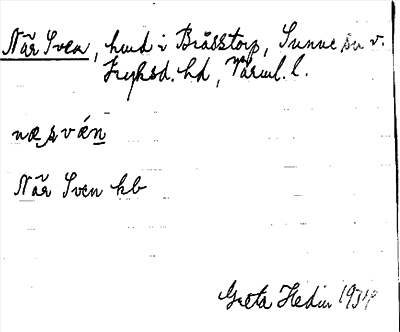 När Sven, hmd i Bråsstorp, Sunne sn v.
Fryksd. hd, Värml. l.
næ ʂvæ̀n
När Sven kb
Greta Hedin 1934